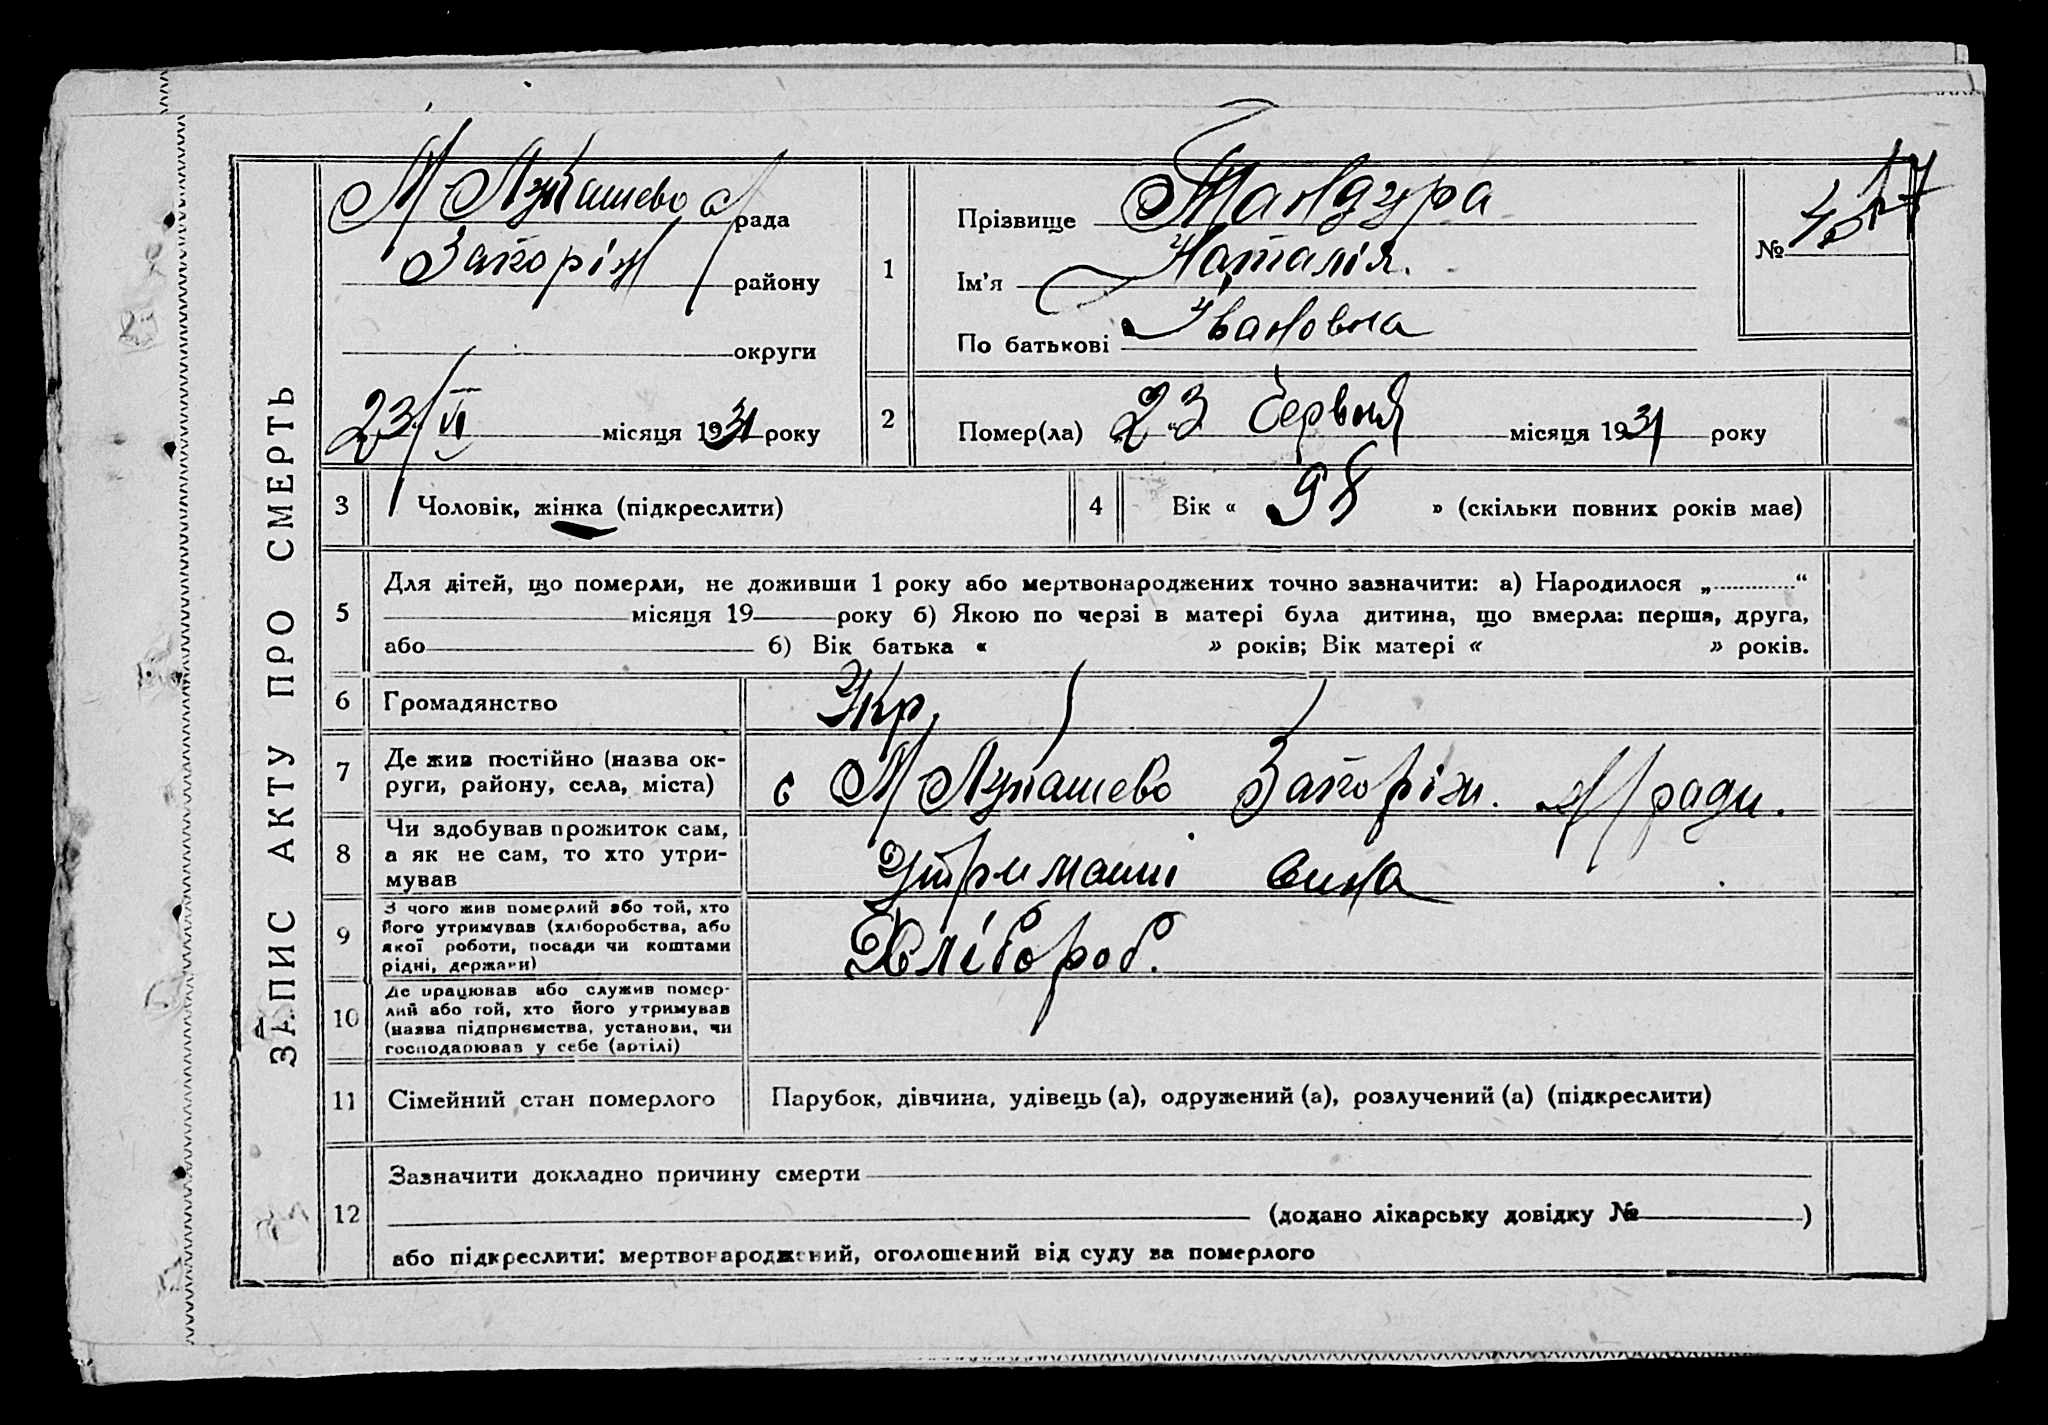 ЗАПИС АКТУ ПРО СМЕРТЬ
М Лукашево с/рада
Запоріж району
округи
23/VI місяця 1931 року
1
Прізвище Тандура
Ім'я Наталія.
По батькові Івановна
№ 17
2
Помер(ла) „23" Червня місяця 1931 року
3 Чоловік, жінка (підкреслити)
4 Вік « 98 » (скільки повних років має)
5 Для дітей, що померли, не доживши 1 року або мертвонароджених точно зазначити: а) Народилося „ “
місяця 19 року б) Якою по черзі в матері була дитина, що вмерла: перша, друга,
або б) Вік батька « » років; Вік матері « » років.
6 Громадянство Укр.
7 Де жив постійно (назва ок-
руги, району, села, міста)
с М Лукашево Запоріж. ради.
8 Чи здобував прожиток сам,
а як не сам, то хто утри-
мував
Утриманні сина
9 З чого жив померлий або той, хто
його утримував (хліборобства, або
якої роботи, посади чи коштами
рідні, держави)
Хлібороб.
10 Де працював або служив помер-
лий або той, хто його утримував
(назва підприємства, установи, чи
господарював у себе (артілі)
11 Сімейний стан померлого Парубок, дівчина, удівець (а), одружений (а), розлучений (а) (підкреслити)
12 Зазначити докладно причину смерти
(додано лікарську довідку № )
або підкреслити: мертвонароджений, оголошений від суду за померлого